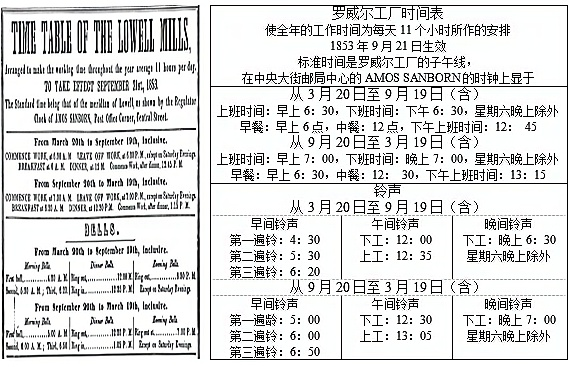 TIME TABLE OF THE LOWELL MILLS,
Arranged to make the working time throughout the year average 11 hours per day.
TO TAKE EFFECT SEPTEMBER 21st, 1853.
The Standard time being that of the meridian of Lowell, as shown by the Regulator
Clock of AMOS SANBORN, Post Office Corner, Central Street.
From March 20th to September 19th, inclusive.
COMMENCE WORK, at 6.30 A. M. LEAVE OFF WORK, at 6.30 P. M., except on Saturday Evenings.
BREAKFAST at 6 A. M. DINNER, at 12 M. Commence Work, after dinner, 12.45 P. M.
From September 20th to March 19th, inclusive.
COMMENCE WORK at 7.00 A. M. LEAVE OFF WORK, at 7.00 P. M., except on Saturday Evenings.
BREAKFAST at 6.30 A. M. DINNER, at 12.30 P.M. Commence Work, after dinner, 1.15 P. M.
BELLS.
From March 20th to September 19th, inclusive.
Morning Bells. Dinner Bells. Evening Bells.
First bell, 4.30 A. M. Ring out, 12.00 M. Ring out, 6.30 P. M.
Second, 5.30 A. M.; Third, 6.20. Ring in, 12.35 P. M. Except on Saturday Evenings.
From September 20th to March 19th, inclusive.
Morning Bells. Dinner Bells. Evening Bells.
First bell, 5.00 A. M. Ring out, 12.30 P. M. Ring out, 7.00 P. M.
Second, 6.00 A. M.; Third, 6.50. Ring in, 1.05 P. M. Except on Saturday Evenings.
罗威尔工厂时间表
使全年的工作时间为每天 11 个小时所作的安排
1853 年 9 月 21 日生效
标准时间是罗威尔工厂的子午线，
在中央大街邮局中心的 AMOS SANBORN 的时钟上显于
从 3 月 20 日至 9 月 19 日（含）
上班时间：早上 6：30，下班时间：下午 6：30，星期六晚上除外
早餐：早上 6 点，中餐：12 点，下午上班时间：12： 45
从 9 月 20 日至 3 月 19 日（含）
上班时间：早上 7：00，下班时间：晚上 7：00，星期六晚上除外
早餐：早上 6：30，中餐：12： 30，下午上班时间：13：15
铃声
从 3 月 20 日至 9 月 19 日（含）
早间铃声 午间铃声 晚间铃声
第一遍铃：4：30 下工：12：00 下工：晚上 6：30
第二遍铃：5：30 上工：12：35 星期六晚上除外
第三遍铃：6：20
从 9 月 20 日至 3 月 19 日（含）
早间铃声 午间铃声 晚间铃声
第一遍龄：5：00 下工：12：30 下工：晚上 7：00
第二遍铃：6：00 上工：13：05 星期六晚上除外
第三遍铃：6：50